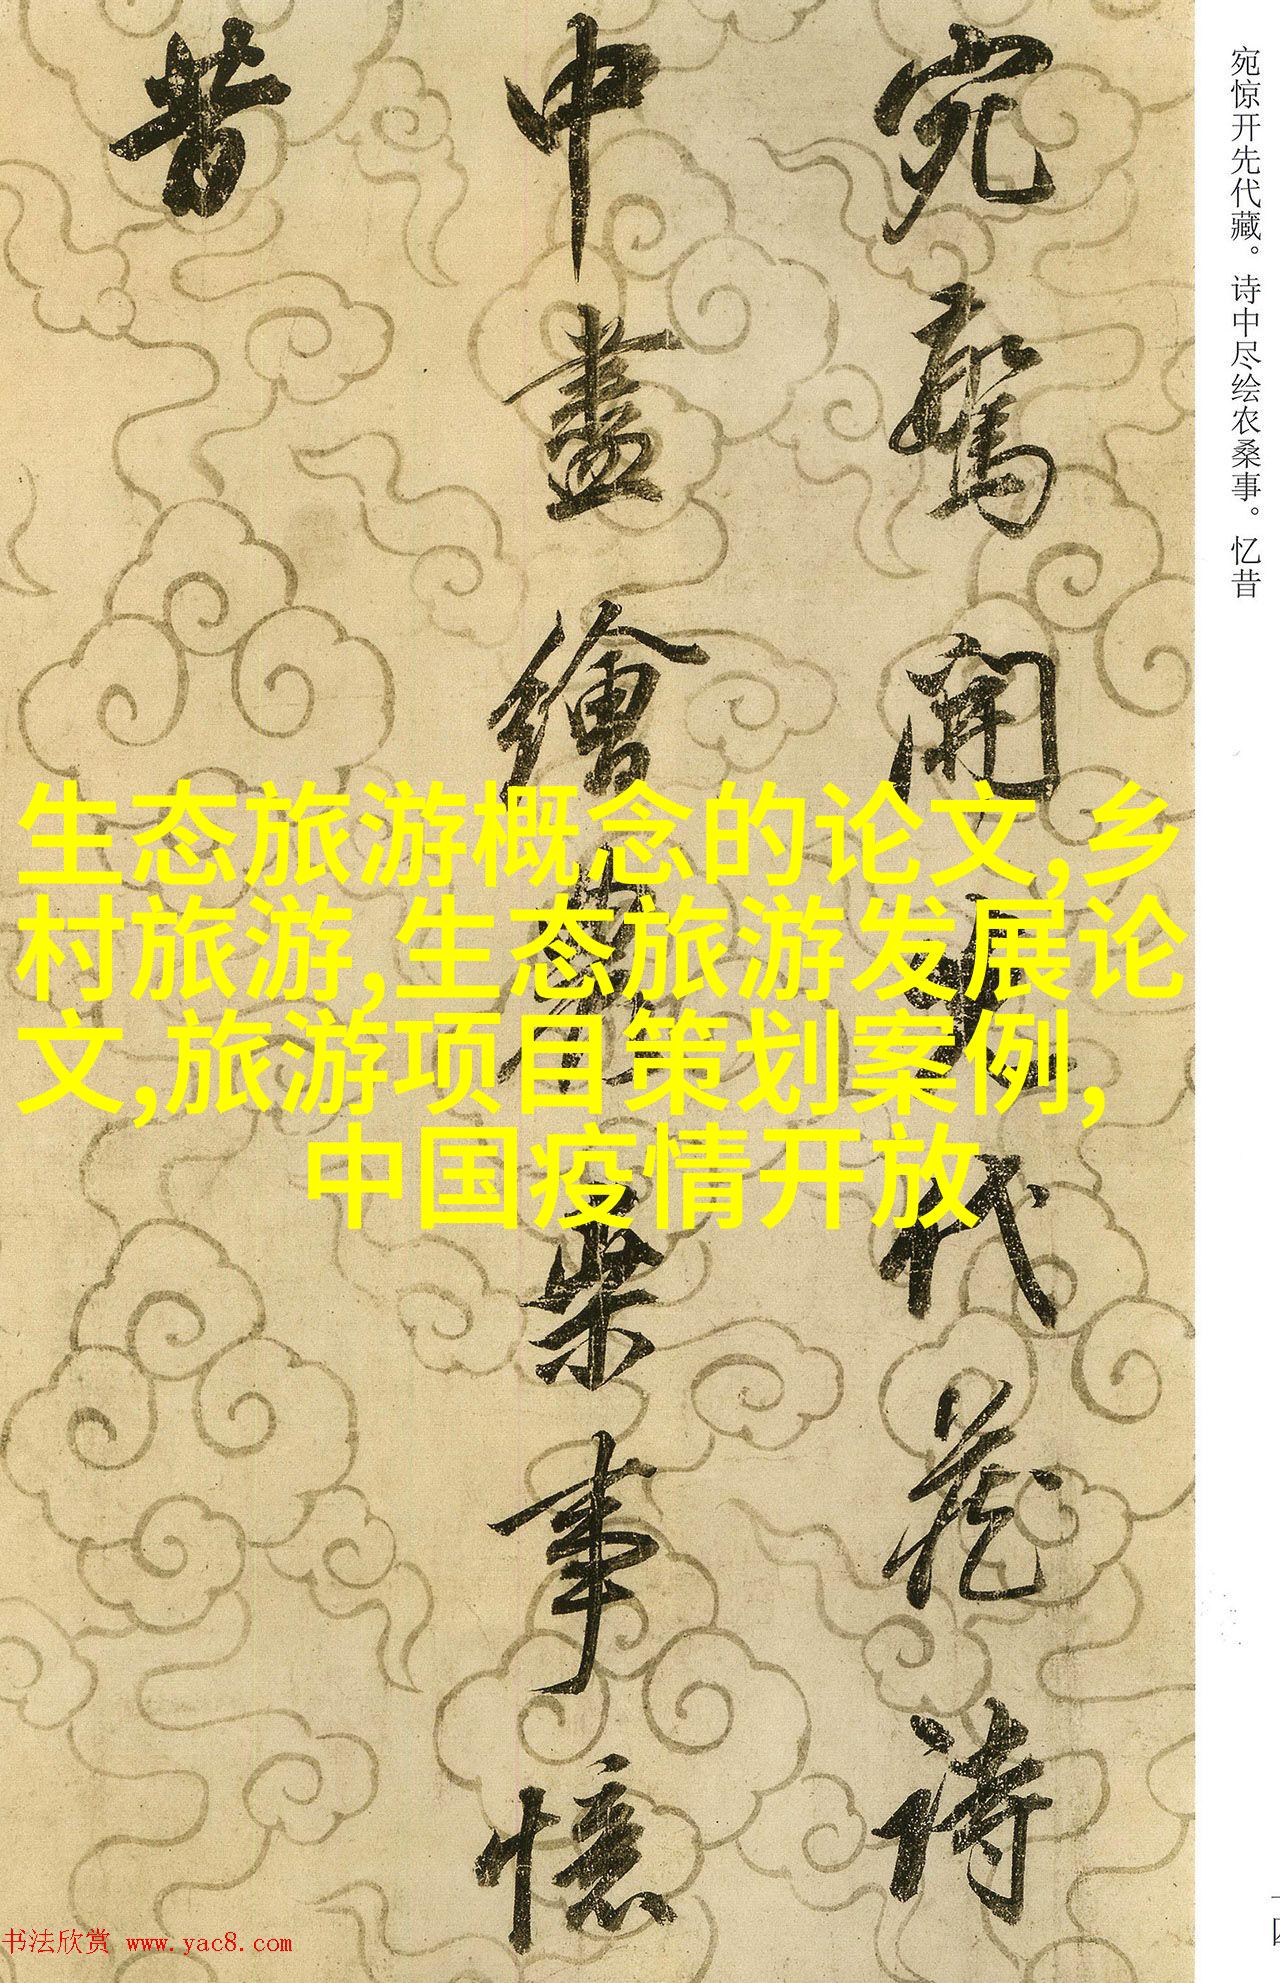 宛驚開先代藏詩
中盡繪農桑事憶
昔
宛惊开先代藏。诗中尽绘农桑事。忆昔
生态旅游概念的论文,乡
村旅游,生态旅游发展论
文,旅游项目策划案例,
中国疫情开放
书法欣赏 www.yac8.com